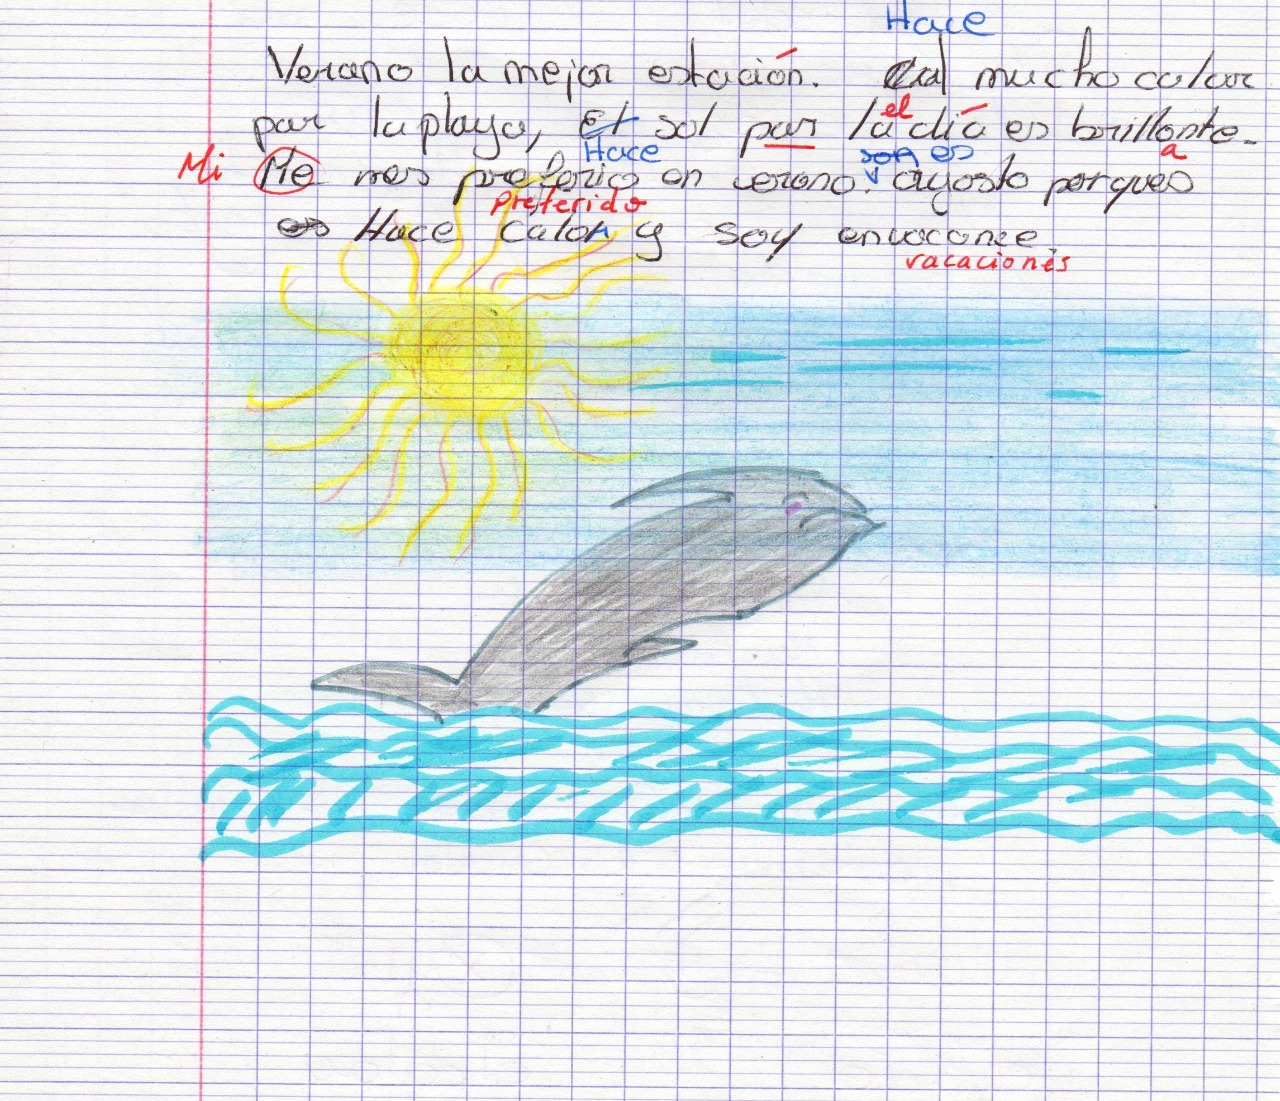 Hace
Verano la mejor estación. mucho calor
el
par la playa, El sol par la día es brillante.
Hace son es a
Mi Me mes preferico en verano. agosto porques
preferido
es Hace calor y soy envacance.
vacaciones